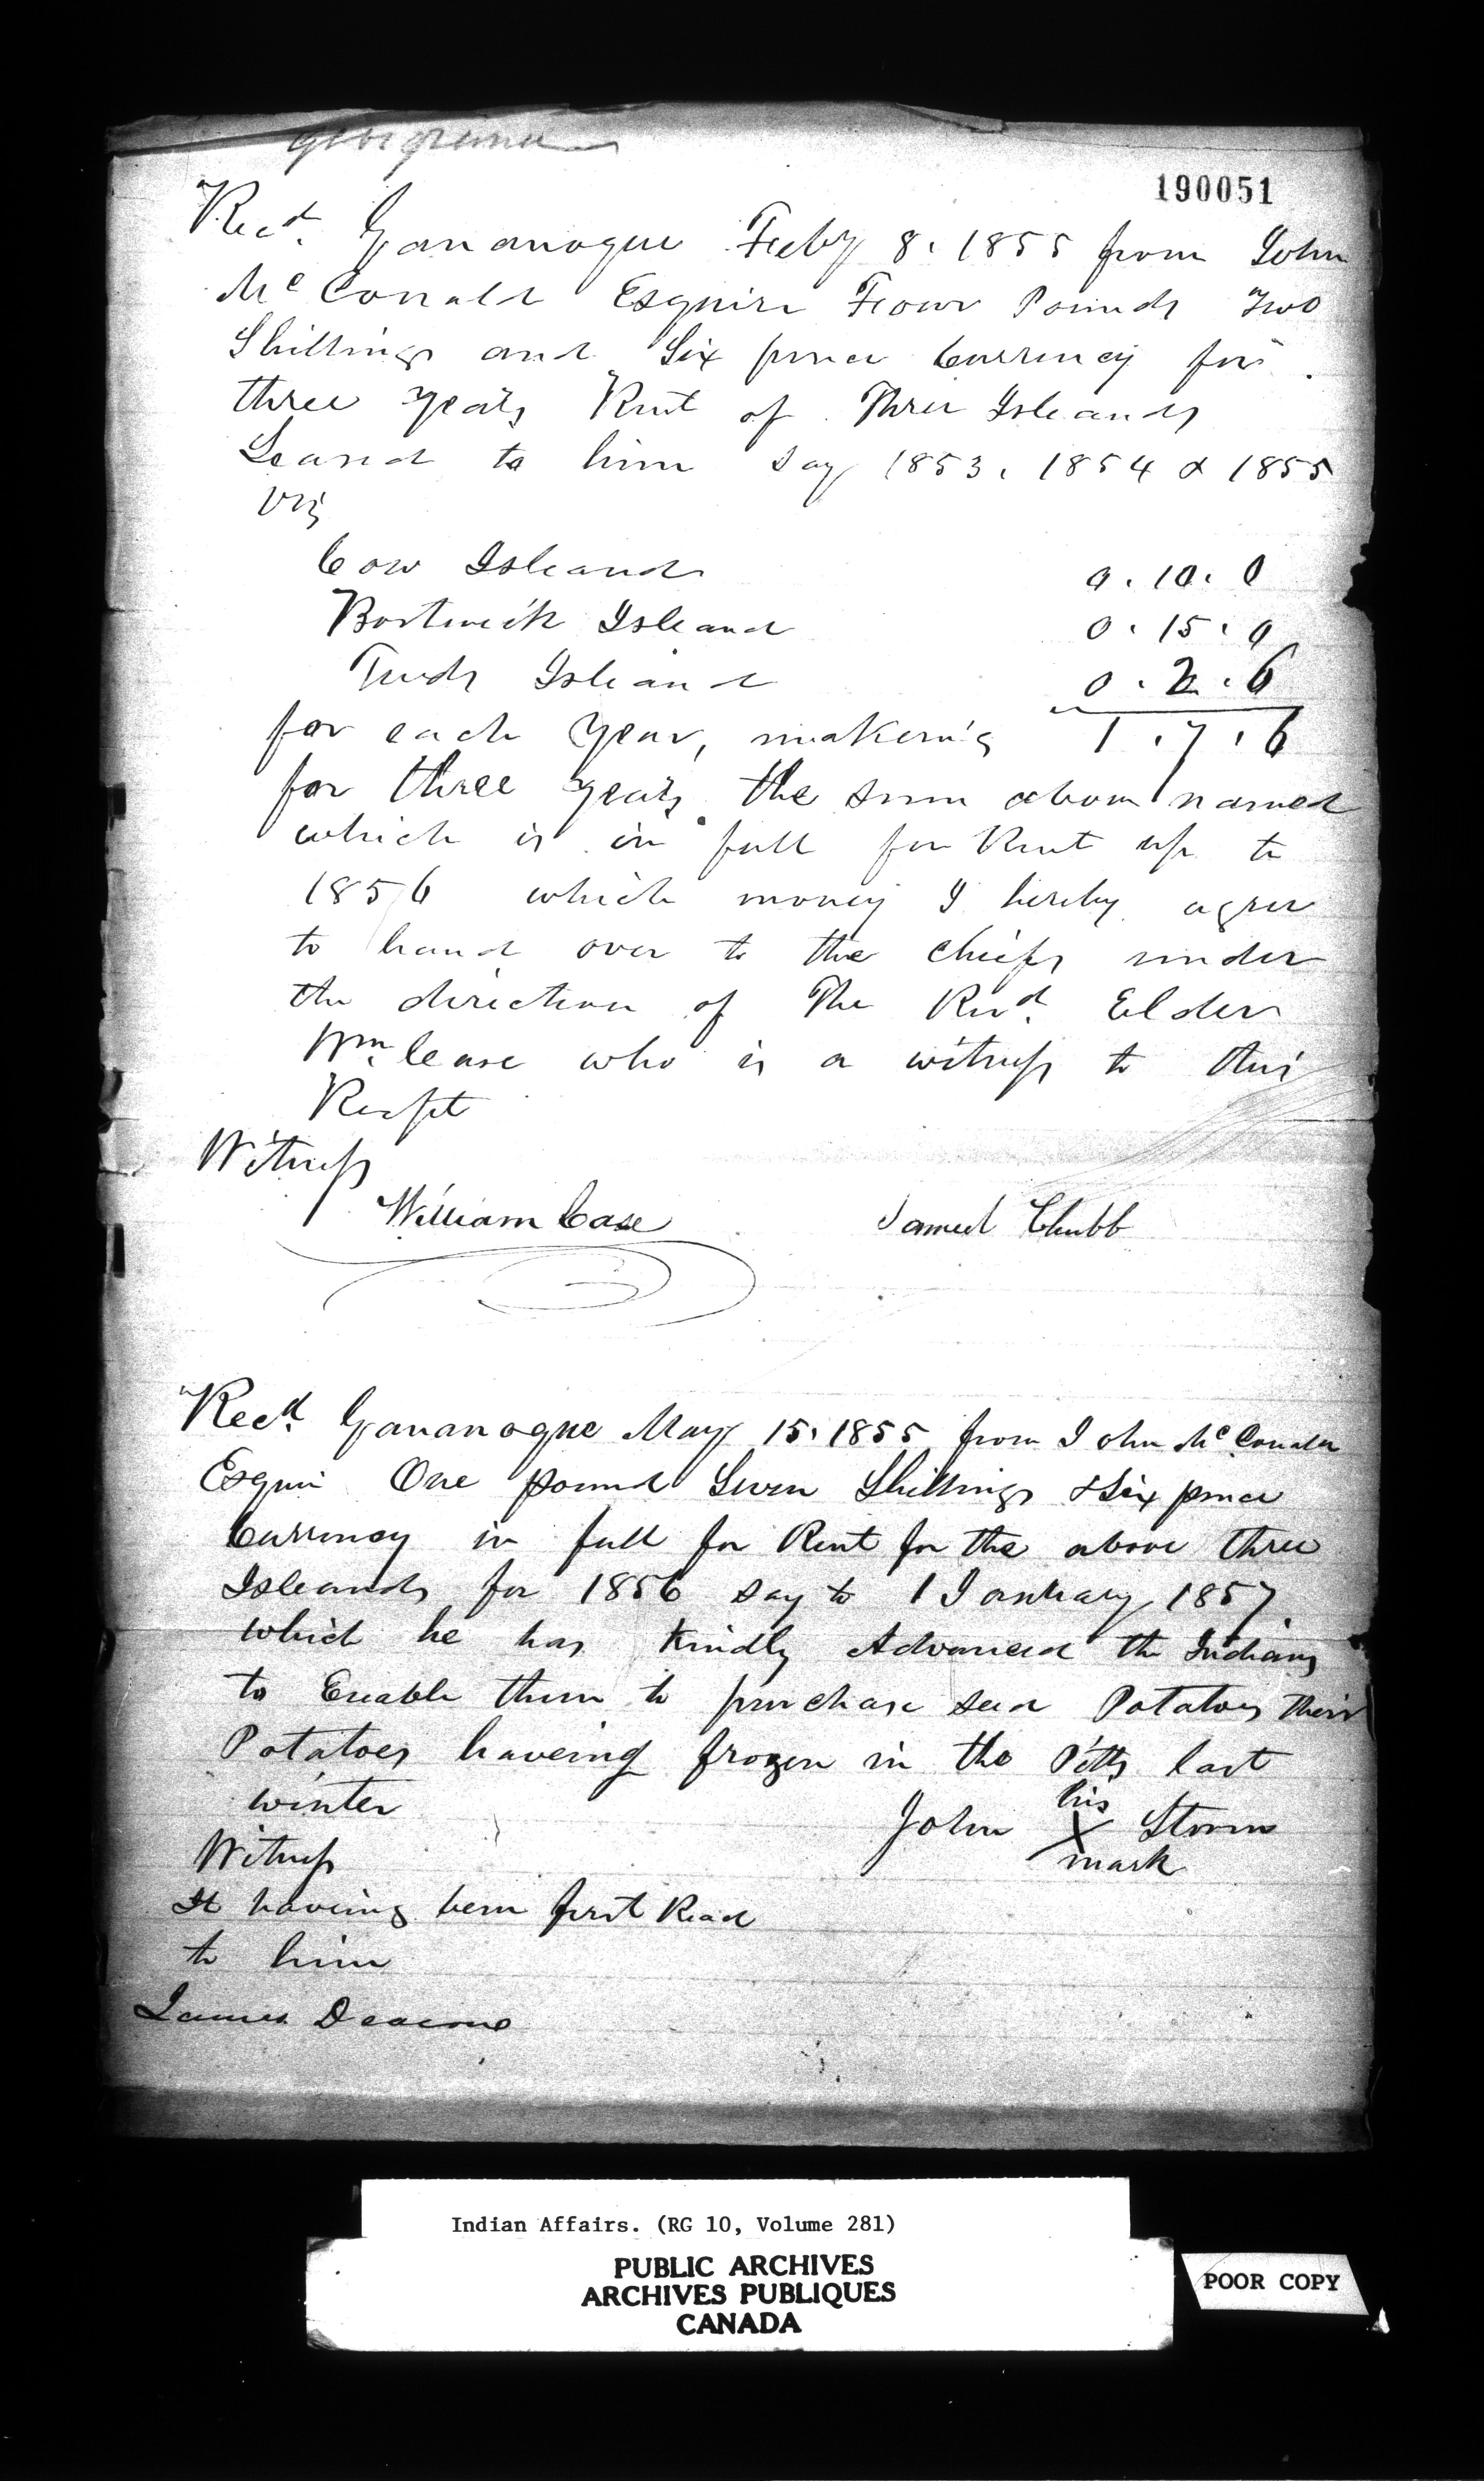 190051
"Recd. Gananoque Feby 8. 1855 from John
McConald Esquire Fowr Pounds Two
Shillings and Six pence Currency for
three years Rent of Three Isleands
Leased to him say 1853, 1854 & 1855
Viz
Cow Isleand 0. 10. 0
Bostwick Isleand 0. 15. 0
Isleand 0. 2. 6
for each year, makeing 1. 7. 6
for three years the sum above named
which is in full for Rent up to
1856 which money I hereby agree
to hand over to the Chiefs under
the direction of The Revd. Elder
Wm. Case who is a witness to this
Recept
Witness
William Case Samuel Chubb
"Recd. Gananoque May 15. 1855 from John McConald
Esquir One pound Seven Shillings & Six pence
Currency in full for Rent for the above three
Isleands for 1856 say to 1 January 1857
which he has kindly Advanced the Indians
to Enable them to purchase seed Potatoes their
Potatoes haveing frozen in the Pitts last
winter
John his X mark Storm
Witness
It haveing been first Read
to him
James Deacon
Indian Affairs. (RG 10, Volume 281)
PUBLIC ARCHIVES
ARCHIVES PUBLIQUES
CANADA
POOR COPY